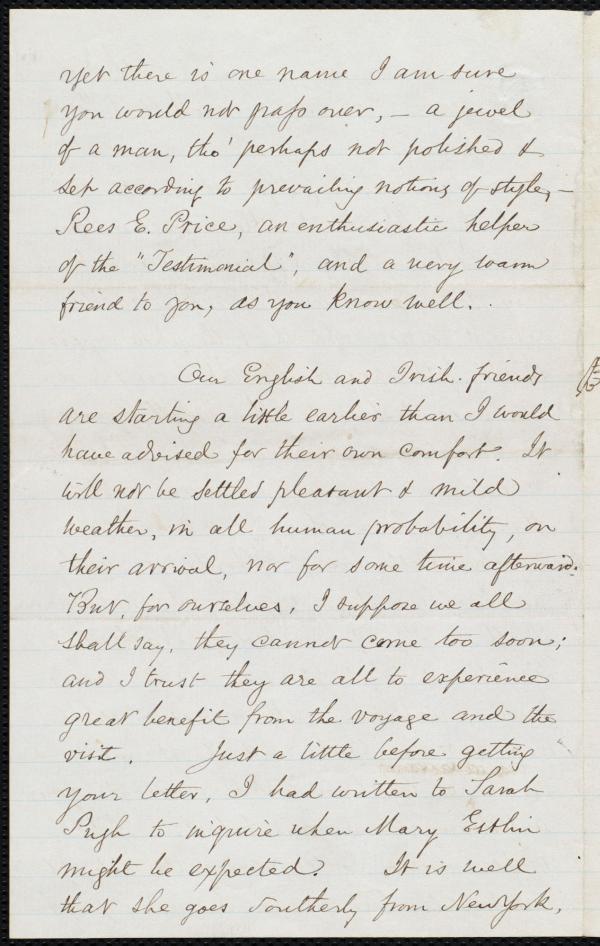 yet there is one name I am sure
you would not pass over, – a jewel
of a man, tho' perhaps not polished &
set according to prevailing notions of style, –
Rees E. Price, an enthusiastic helper
of the "Testimonial", and a very warm
friend to you, as you know well.
Our English and Irish friends
are starting a little earlier than I would
have advised for their own comfort. It
will not be settled pleasant & mild
weather, in all human probability, on
their arrival, nor for some time afterward.
But, for ourselves, I suppose we all
shall say, they cannot come too soon;
and I trust they are all to experience
great benefit from the voyage and the
visit. Just a little before getting
your letter, I had written to Sarah
Pugh to inquire when Mary Estlin
might be expected. It is well
that she goes Southerly from New York,